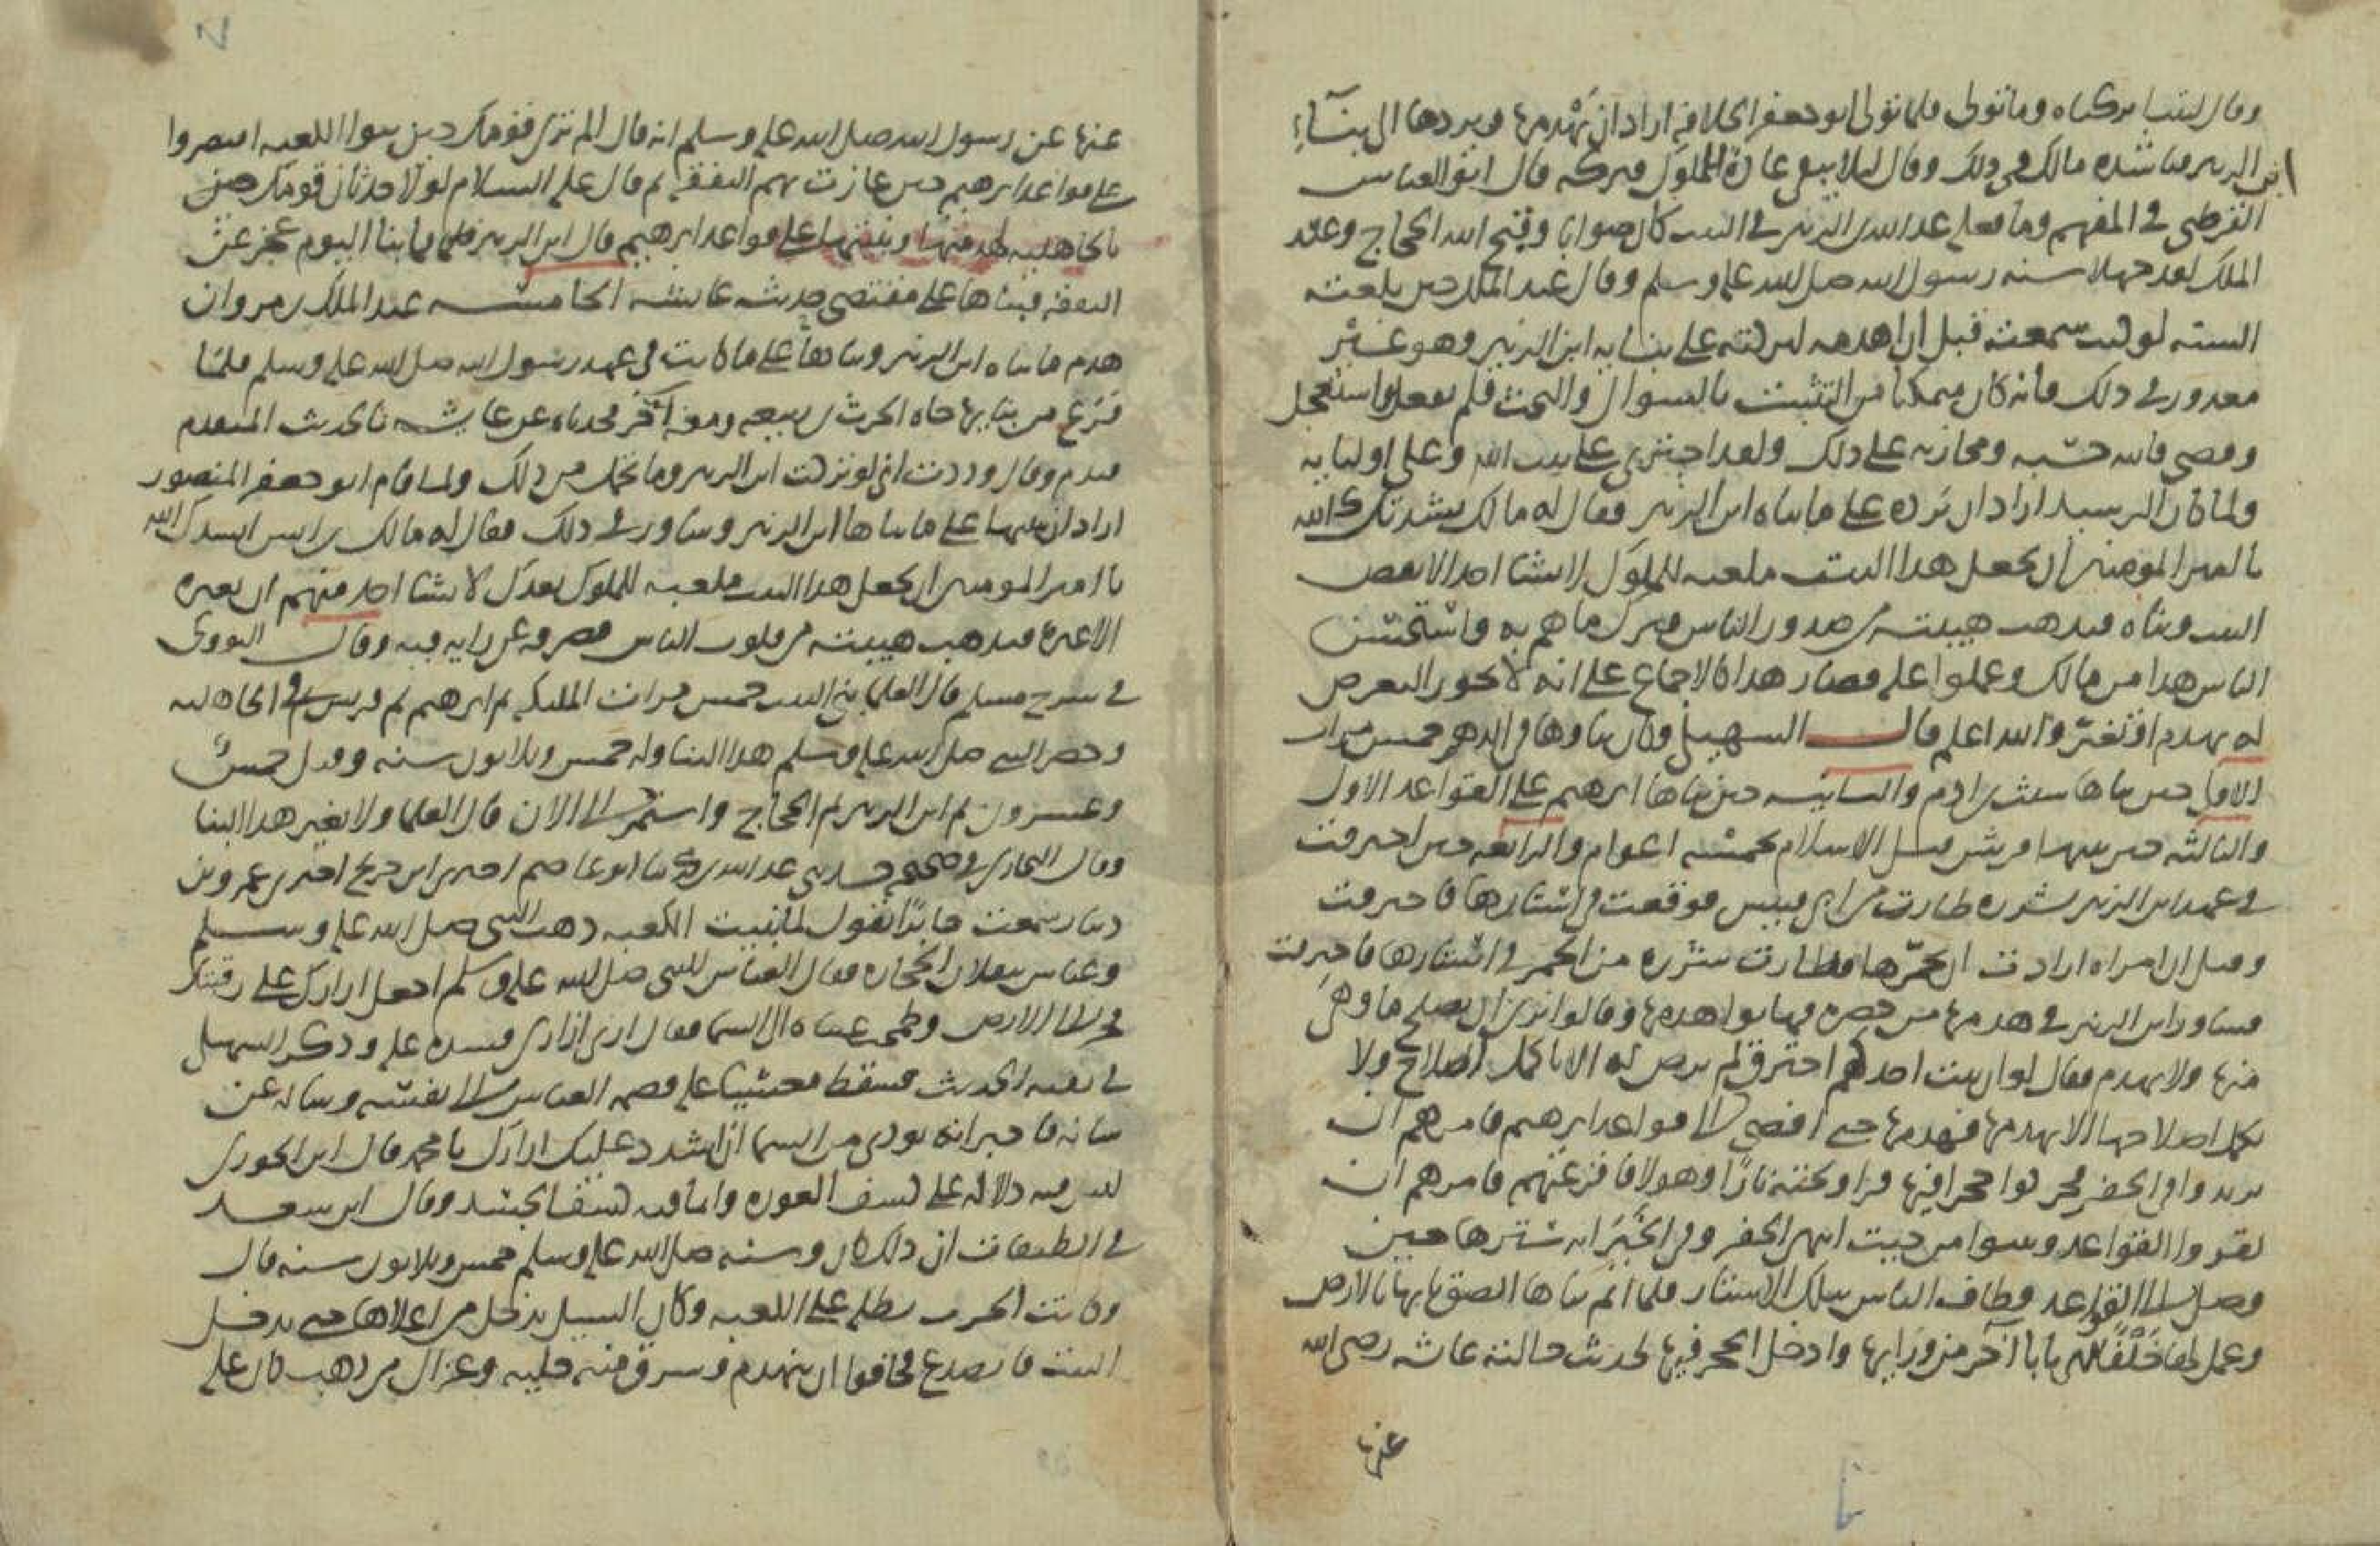 وقال ليتنا تركناه وما تولى فلما تولى ابو جعفر الخلافه اراد ان يهدمها ويردها الى بناء
ابن الزبير فناشده مالك في ذلك وقال ليلا يبقى عادة للملوك فتركه قال ابو العباس
القرطبي في المفهم وما فعله عبد الله بن الزبير في البيت كان صوابا وقبح الله الحجاج وعبد
الملك لقد جهلا سنه رسول الله صلى الله عليه وسلم وقال عبد الملك حين بلغته
السنه لو كنت سمعته قبل ان اهدمه لتركته على بنايه ابن الزبير وهو غير
معذور في ذلك فانه كان متمكنا من التثبت بالسوال والبحث فلم يفعل واستعجل
وقصى فالله حسبه ومجازيه على ذلك ولقد اجترى على بيت الله وعلى اوليايه
ولما كان الرشيد اراد ان يرده على ما بناه ابن الزبير فقال له مالك نشدتك الله
يا امير المومنين ان تجعل هذا البيت ملعبه للملوك لا يشا احد الا نقض
البيت وبناه فتذهب هيبته من صدور الناس فترك ما هم به واستحسن
الناس هذا من مالك وعملوا عليه فصار هذا كالاجماع على انه لا يجوز التعرض
له بهدم او تغير والله اعلم قال السهيلي وكان بناوها في الدهر خمس مرات
الاولى حين بناها شيث بن ادم والثانيه حين بناها ابرهيم على القواعد الاول
والثالثه حين بنتها قريش قبل الاسلام بخمسه اعوام والرابعه حين احترقت
في عهد ابن الزبير بشرره طارت من ابي قبيس فوقعت في استارها فاحترقت
وقيل ان امراه ارادت ان تجمرها فطارت شرره من المجمر في استارها فاحترقت
فشاور ابن الزبير في هدمها من حضره فهابوا هدمها وقالوا نرى ان يصلح ما وهى
منها ولا يهدم فقال لو ان بيت احدكم احترق لم يرض له الا باكمل اصلاح ولا
يكمل اصلاحها الا بهدمها فهدمها حتى افضى الى قواعد ابرهيم فامرهم ان
يزيدوا في الحفر فحركوا حجرا فيها فراوا تحته نارا وهولا فافزعهم فامرهم ان
يقروا القواعد وبنوا من حيث انتهى الحفر وفي الخبر انه سترها حين
وصل الى القواعد وطاف الناس بتلك الاستار فلما اتم بناها الصق بابها بالارض
وعمل لها خلفا اي بابا آخر من ورايها وادخل الحجر فيها لحديث خالته عايشه رضي الله
عنها
عنها عن رسول الله صلى الله عليه وسلم انه قال الم تري قومك حين بنوا الكعبه اقتصروا
على قواعد ابرهيم حين عازت بهم النفقه ثم قال عليه السلام لولا حدثان قومك
بالجاهليه لهدمتها وبنيتها على قواعد ابرهيم قال ابن الزبير فلما فما بنا اليوم عجز عن
النفقه فبناها على مقتضى حديث عايشه الخامسه عبد الملك بن مروان
هدم ما بناه ابن الزبير وبناها على ما كانت في عهد رسول الله صلى الله عليه وسلم فلما
فرغ من بنايها جاه الحرث بن ربيعه ومعه آخر فحدثاه عن عايشه بالحديث المتقدم
فندم وقال وددت اني لو تركت ابن الزبير وما تحمل من ذلك ولما قام ابو جعفر المنصور
اراد ان يبنيها على ما بناها ابن الزبير وشاور في ذلك فقال له مالك بن انس انشدك الله
يا امير المومنين ان تجعل هذا البيت ملعبه للملوك بعدك لا يشا احد منهم ان يغيره
الا غيره فتذهب هيبته من قلوب الناس فصرفه عن رايه فيه وقال النووي
في شرح مسلم قال العلما بني البيت خمس مرات الملايكه ثم ابرهيم ثم قريش في الجاهليه
وحضر النبي صلى الله عليه وسلم هذا البنا وله خمس وثلاثون سنه وقيل خمس
وعشرون ثم ابن الزبير ثم الحجاج واستمر الى الان قال العلما ولا يغير هذا البنا
وقال البخاري في صحيحه حدثني عبد الله بن محمد ثنا ابو عاصم اخبرني ابن جريج اخبرني عمرو بن
دينار سمعت جابرا يقول لما بنيت الكعبه ذهب النبي صلى الله عليه وسلم
وعباس ينقلان الحجاره فقال العباس للنبي صلى الله عليه وسلم اجعل ازارك على رقبتك
فخر الى الارض وطمحت عيناه الى السما فقال ارني ازاري فشده عليه وذكر السهيلي
في بقيه الحديث فسقط مغشيا عليه فضمه العباس الى نفسه وساله عن
شانه فاخبر انه نودي من السما ان اشدد عليك ازارك يا محمد قال ابن الجوزي
ليس فيه دلاله على كشف العوره وانما فيه كشف الجسد وقال ابن سعد
في الطبقات ان ذلك كان وسنه صلى الله عليه وسلم خمس وثلاثون سنه قال
وكانت الجرف تطل على الكعبه وكان السيل يدخل من اعلاها حتى يدخل
البيت فانصدع فخافوا ان ينهدم وسرق منه حليه وغزال من ذهب كان عليه